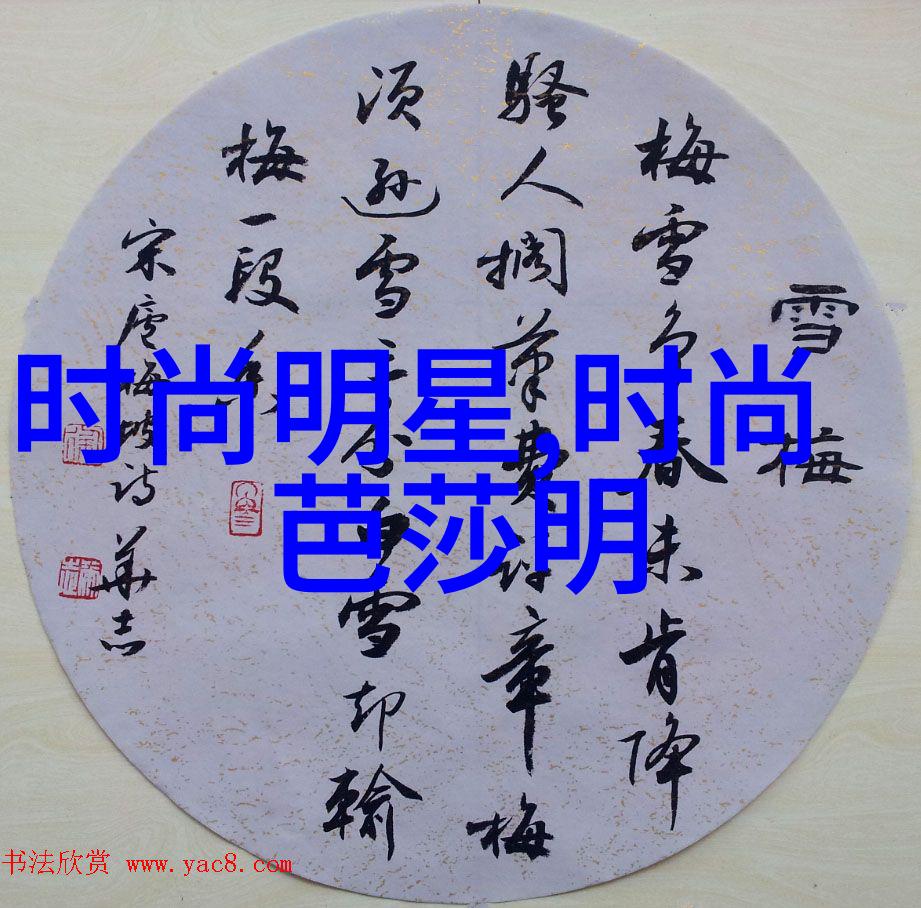 雪梅
梅雪争春未肯降
騷人擱筆費诗章梅
須遜雪三分白雪却輸
梅一段香
宋廬梅坡诗 華志
时尚明星,时尚
芭莎明
书法欣赏 www.yac8.com